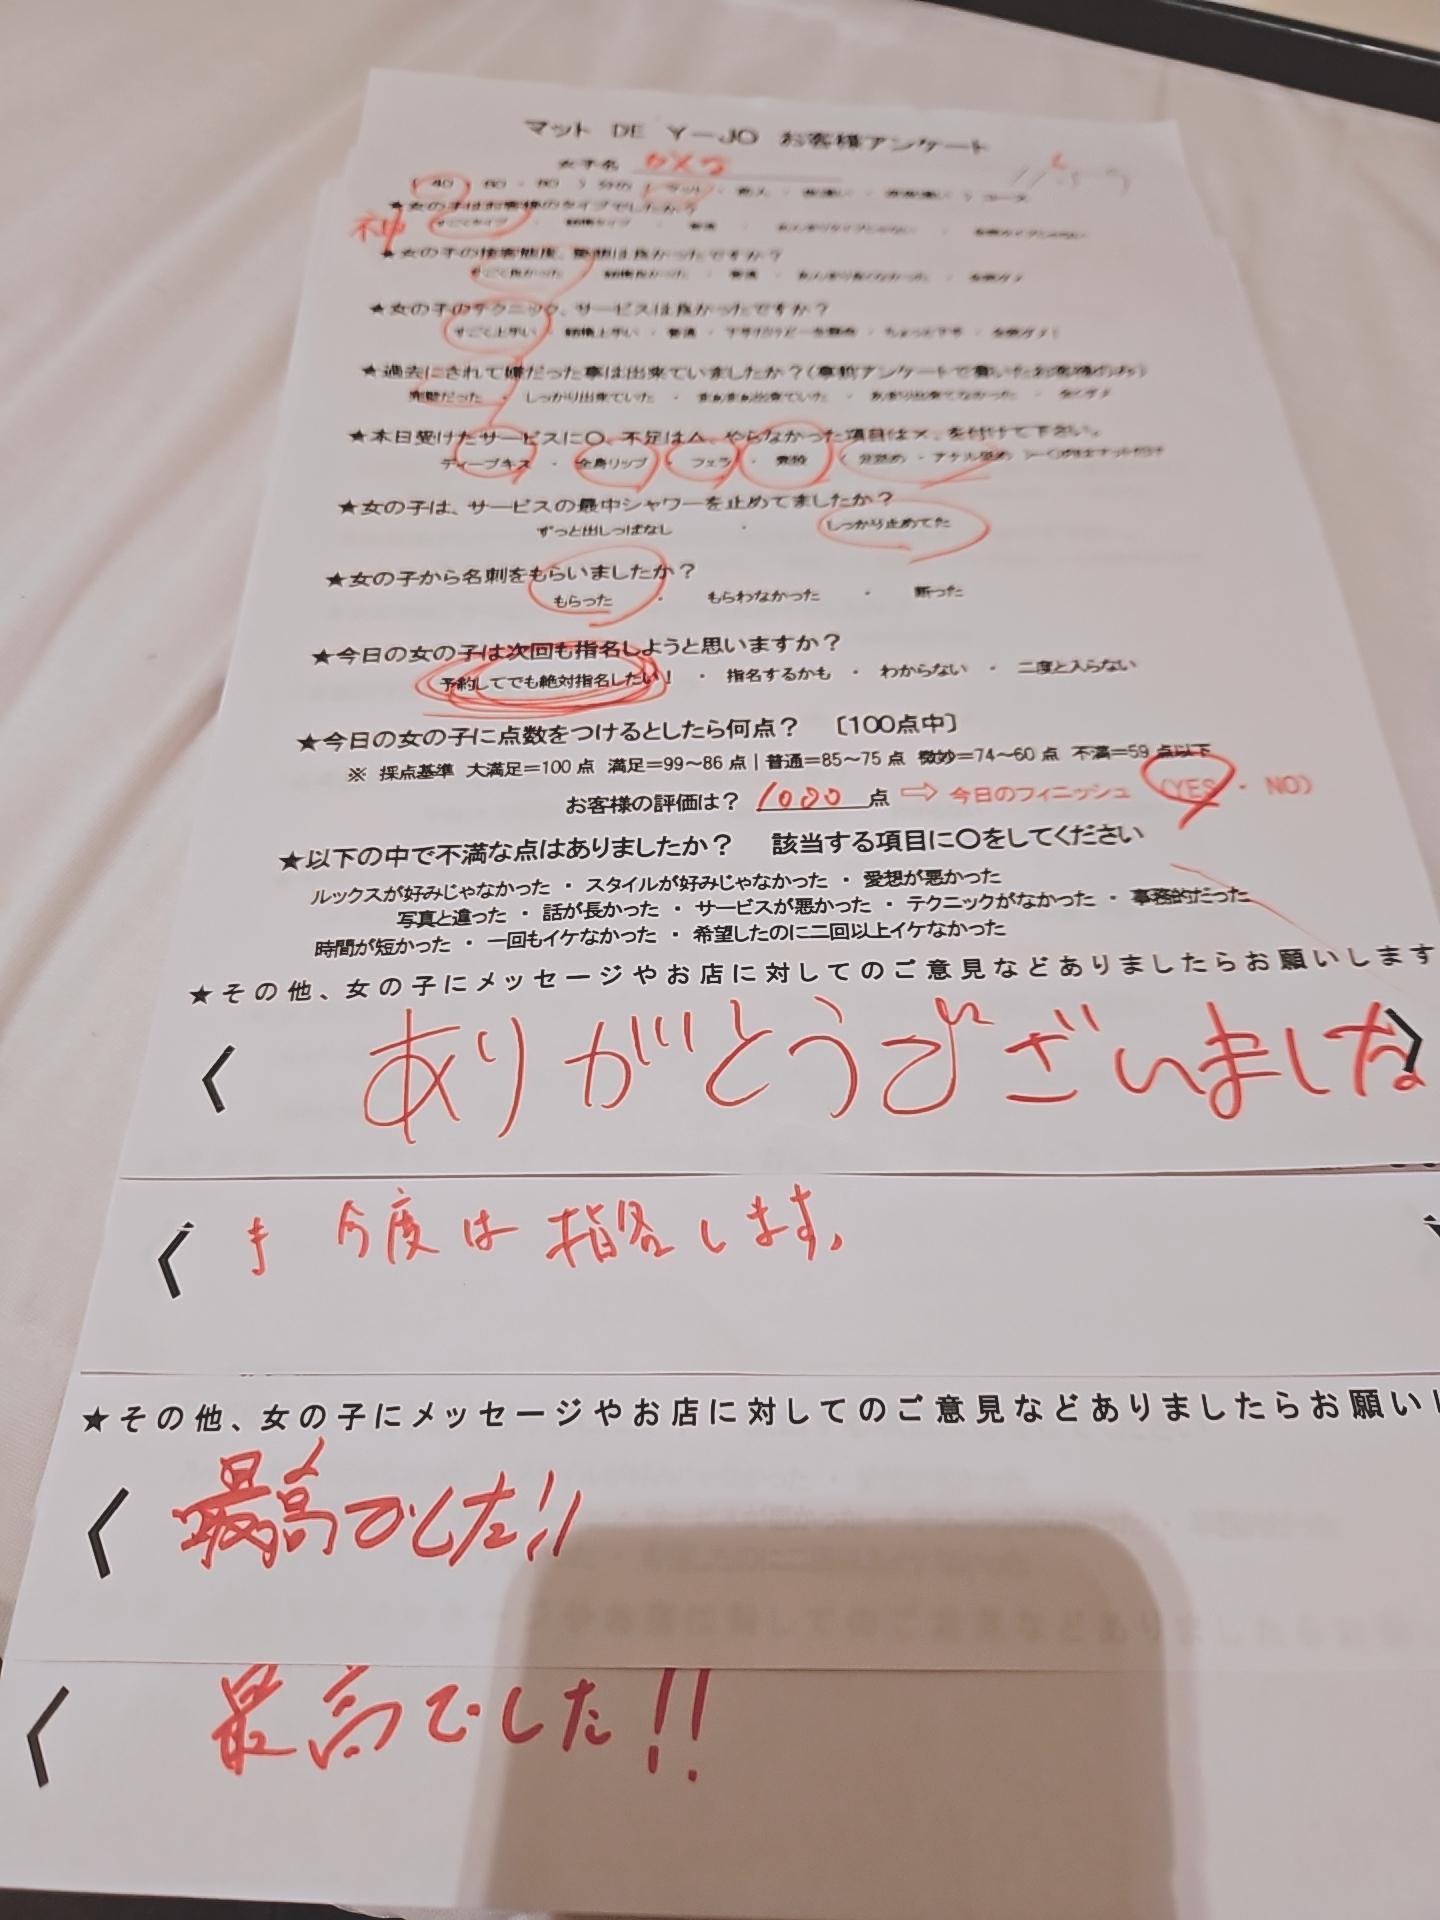 マット DE Y－JO お客様アンケート
女子名
★女の子はお客様のタイプでしたか？
神
すごくタイプ ・ 結構タイプ ・ 普通 ・ あんまりタイプじゃない ・ 全然タイプじゃない
★女の子の接客態度、愛想は良かったですか？
すごく良かった ・ 結構良かった ・ 普通 ・ あんまり良くなかった ・ 全然ダメ
★女の子のテクニック、サービスは良かったですか？
すごく上手い ・ 結構上手い ・ 普通 ・ 下手だけど一生懸命 ・ ちょっと下手 ・ 全然ダメ！
★過去にされて嫌だった事は出来ていましたか？（事前アンケートで書いたお客様のみ）
完璧だった ・ しっかり出来ていた ・ まぁまぁ出来ていた ・ あまり出来てなかった ・ 全くダメ
★本日受けたサービスに〇、不足は△、やらなかった項目は×、を付けて下さい。
ディープキス ・ 全身リップ ・ フェラ ・ 素股
★女の子は、サービスの最中シャワーを止めてましたか？
ずっと出しっぱなし ・ しっかり止めてた
★女の子から名刺をもらいましたか？
もらった ・ もらわなかった ・ 断った
★今日の女の子は次回も指名しようと思いますか？
予約してでも絶対指名したい！ ・ 指名するかも ・ わからない ・ 二度と入らない
★今日の女の子に点数をつけるとしたら何点？ 〔100点中〕
※ 採点基準 大満足＝100点 満足＝99～86点｜普通＝85～75点 微妙＝74～60点 不満＝59点以下
お客様の評価は？ 1000 点 ⇨ 今日のフィニッシュ （YES ・ NO）
★以下の中で不満な点はありましたか？ 該当する項目に〇をしてください
ルックスが好みじゃなかった ・ スタイルが好みじゃなかった ・ 愛想が悪かった
写真と違った ・ 話が長かった ・ サービスが悪かった ・ テクニックがなかった ・ 事務的だった
時間が短かった ・ 一回もイケなかった ・ 希望したのに二回以上イケなかった
★その他、女の子にメッセージやお店に対してのご意見などありましたらお願いします
〈 ありがとうございました 〉
〈 今度は指名します。
★その他、女の子にメッセージやお店に対してのご意見などありましたらお願いし
〈 最高でした!!
〈 最高でした!!